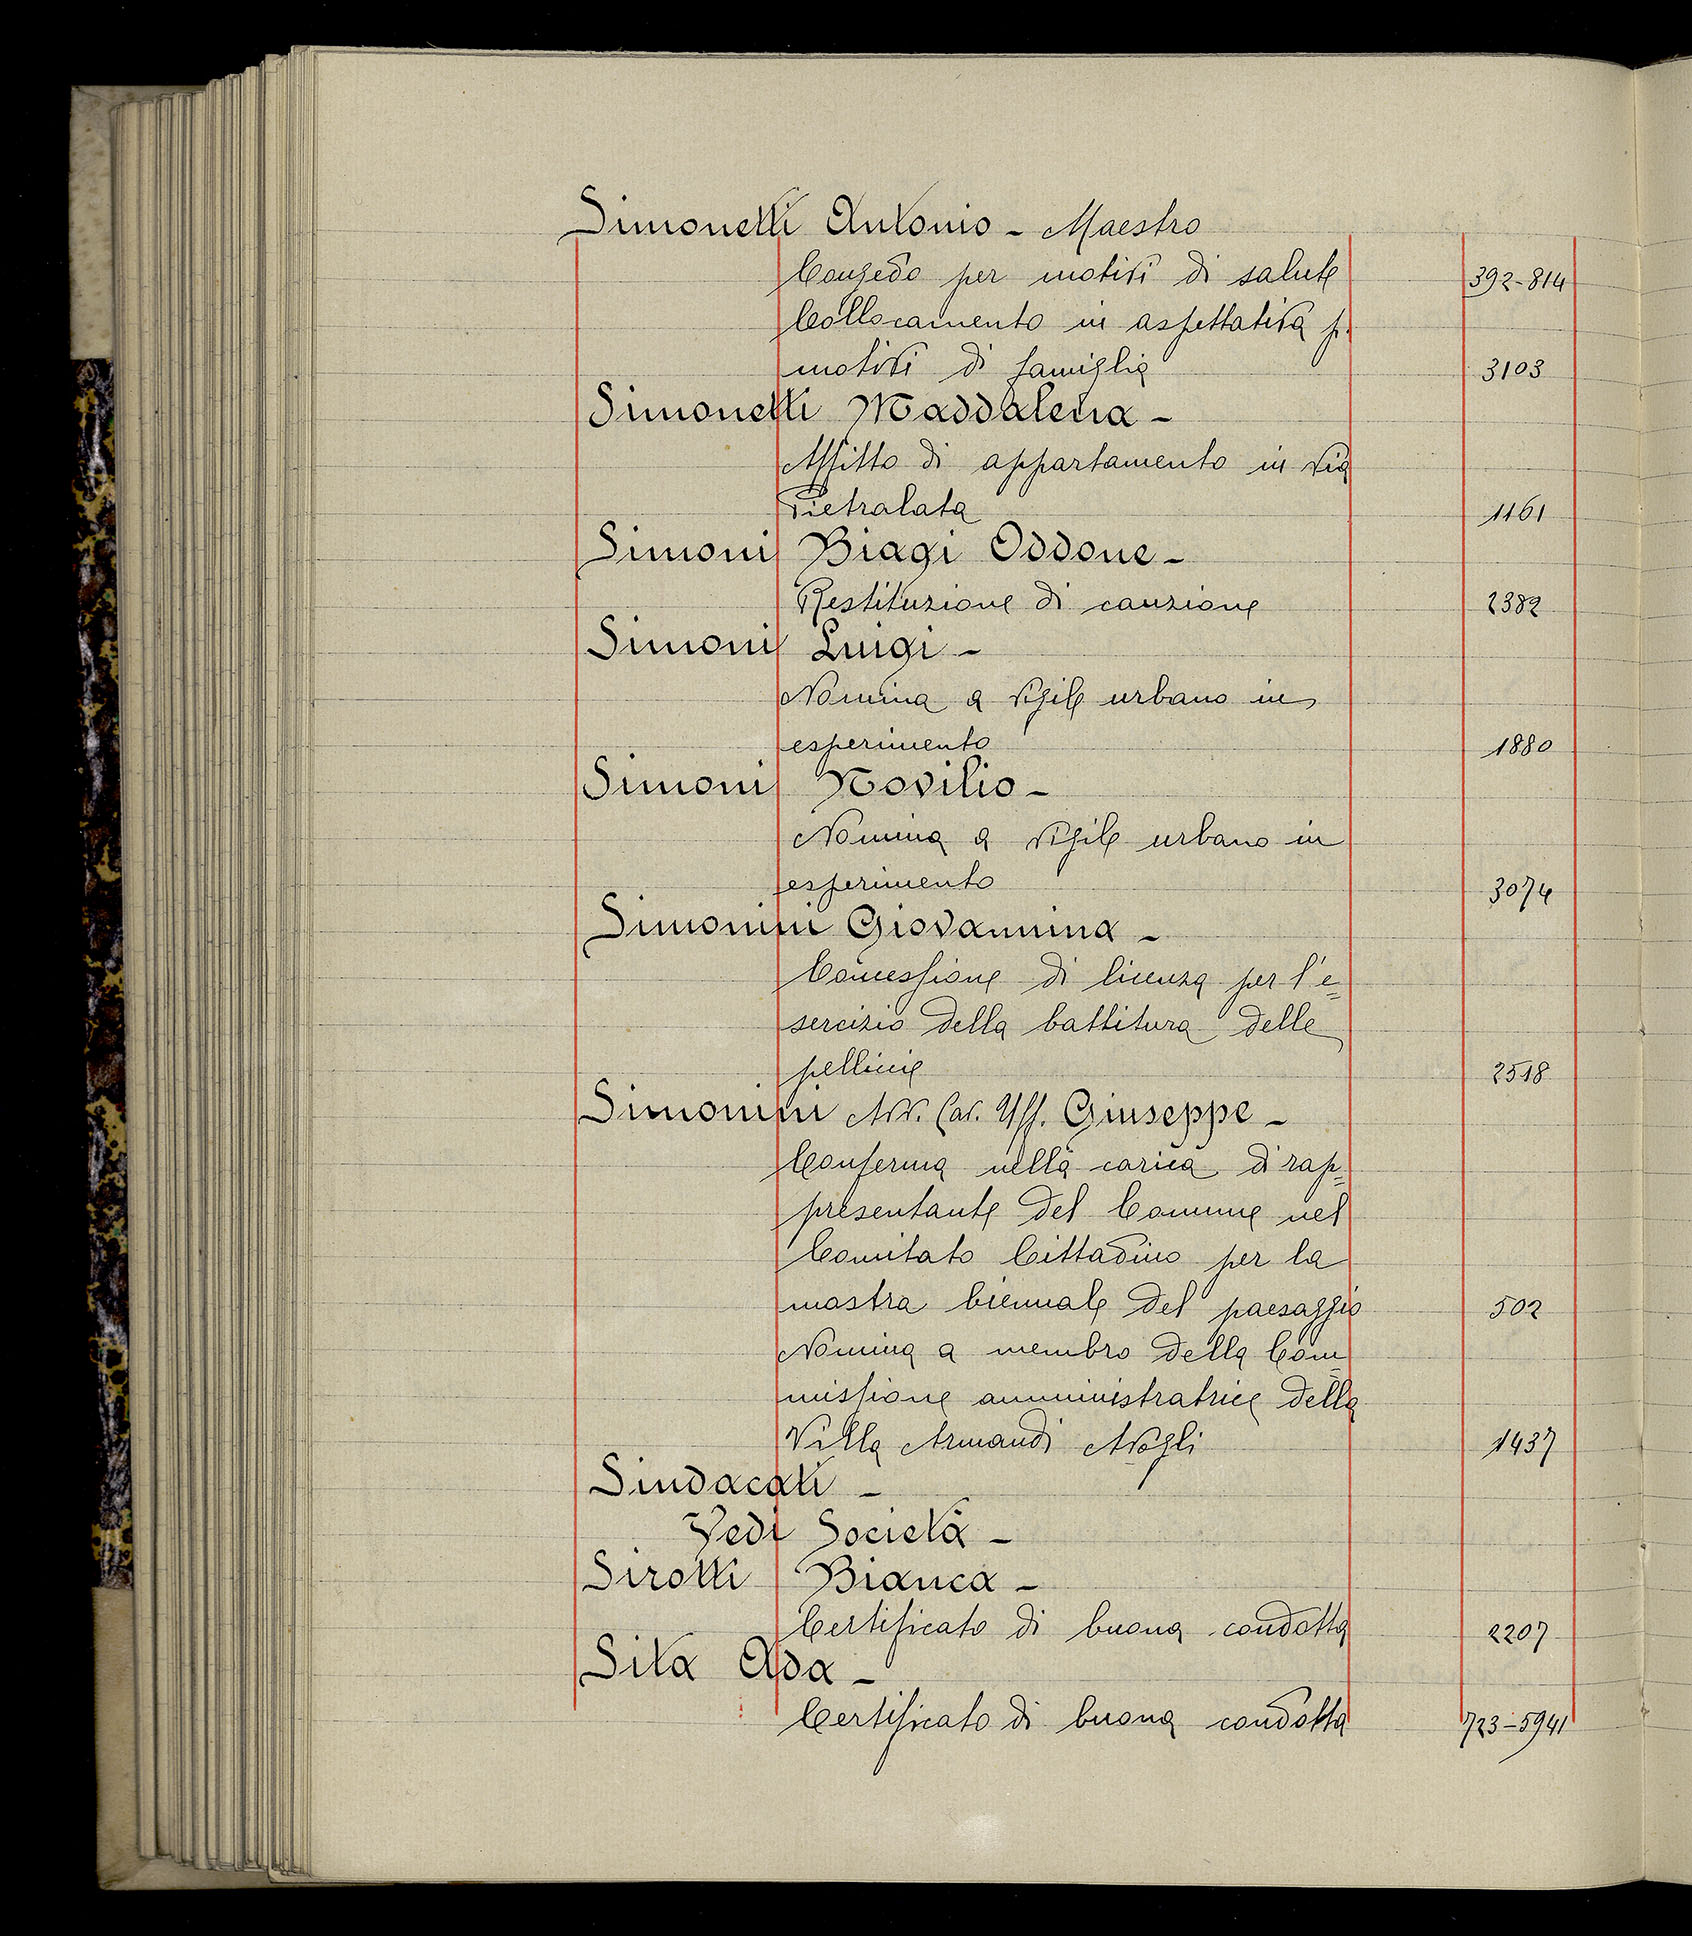 Simonetti Antonio - Maestro
Congedo per motivi di salute 392-814
Collocamento in aspettativa p.
motivi di famiglia 3103
Simonetti Maddalena -
Affitto di appartamento in via
Pietralata 1161
Simoni Biagi Oddone -
Restituzione di cauzione 2382
Simoni Luigi -
Nomina a vigile urbano in
esperimento 1880
Simoni Novilio -
Nomina a vigile urbano in
esperimento 3074
Simonini Giovannina -
Concessione di licenza per l'e=
sercizio della battitura delle
pellicie 2518
Simonini Avv. Cav. Uff. Giuseppe -
Conferma nella carica di rap=
presentante del Comune nel
Comitato Cittadino per la
mostra biennale del paesaggio 502
Nomina a membro della Com=
missione amministratrice della
Villa Armandi Avogli 1437
Sindacati -
Vedi Società -
Sirotti Bianca -
Certificato di buona condotta 2207
Sita Ada -
Certificato di buona condotta 723-5941